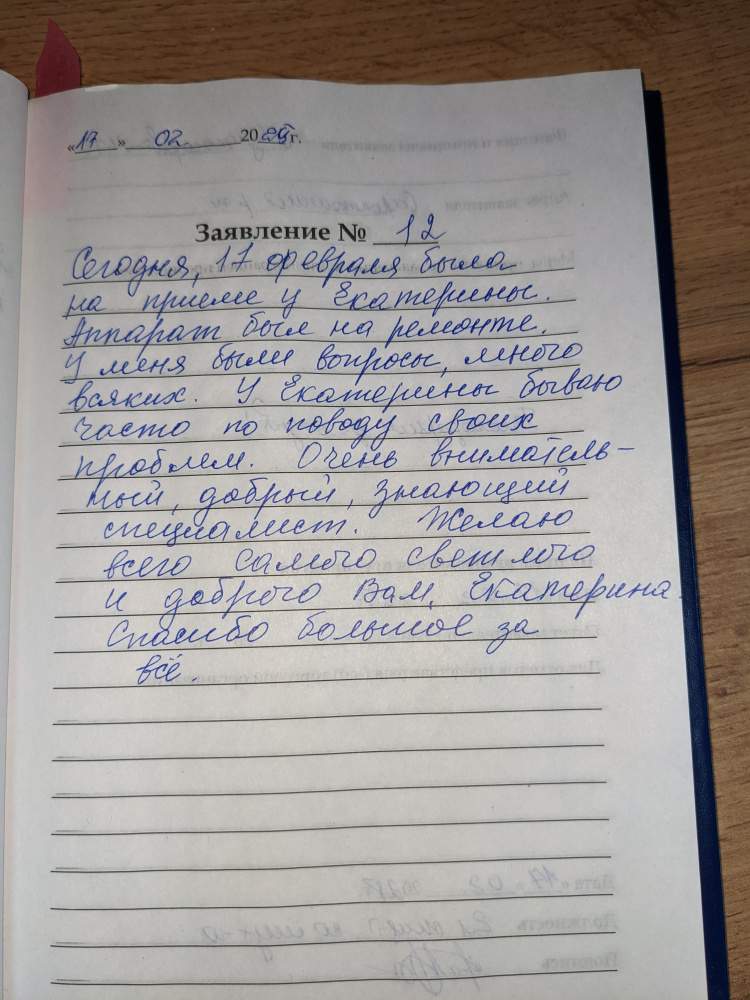 «17» 02 20 г.
Заявление № 12
Сегодня, 17 февраля была
на приеме у Екатерины.
Аппарат был на ремонте.
У меня были вопросы, много
всяких. У Екатерины бываю
часто по поводу своих
проблем. Очень вниматель-
ный, добрый, знающий
специалист. Желаю
всего самого светлого
и доброго Вам, Екатерина.
Спасибо большое за
всё.